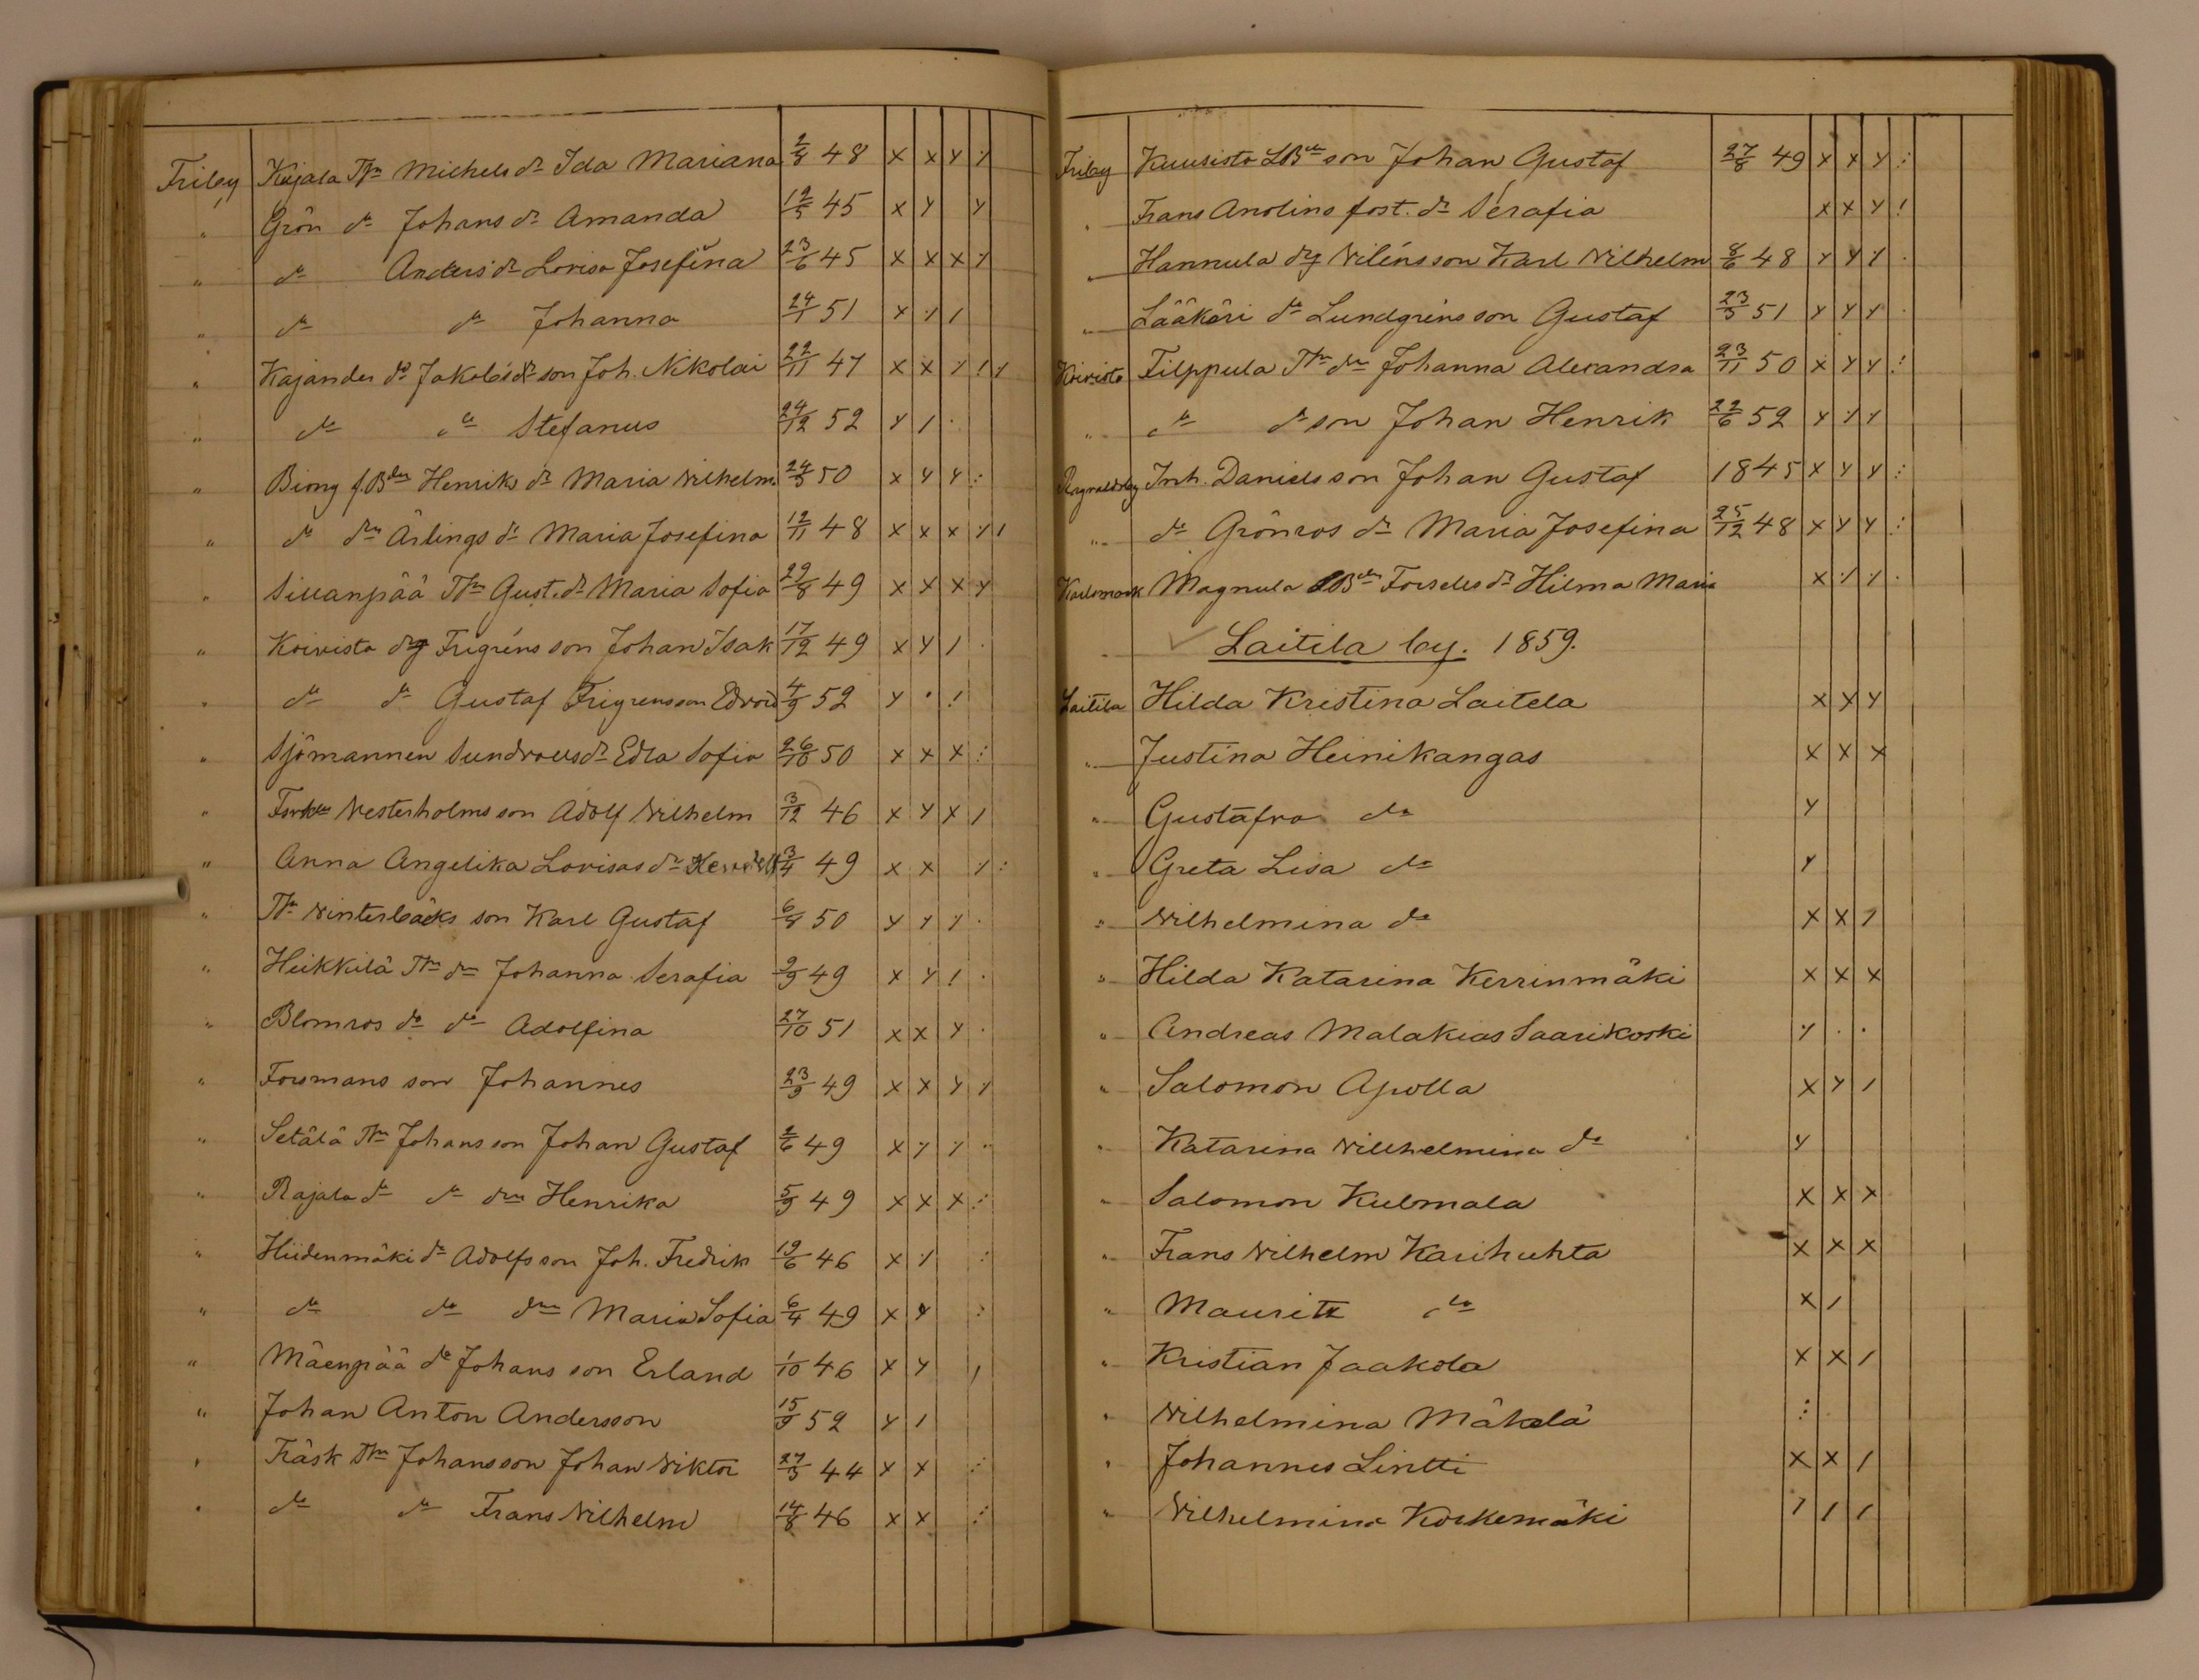 Friby Kajala Thr Michels dr Ida Mariana 2/8 48 x x y ٪
" Grön do Johans dr Amanda 12/5 45 x y y
" do Anders dr Lovisa Josefina 23/6 45 x x x ٪
" do do Johanna 24/1 51 x ٪ /
" Kajander do Jakobs dr son Joh. Nikolai 22/11 47 x x ٪ ! y
" do do Stefanus 24/12 52 y / .
" Biong f.Bdn Henriks dr Maria Vilhelm. 24/5 50 x y y :
" do drn Ärlings dr Maria Josefina 12/11 48 x x x ٪ /
" Siuanpää Thr Gust. dr Maria Sofia 29/8 49 x x x y
" Koivisto drg Frigréns son Johan Isak 17/12 49 x y / .
" do do Gustaf Frigrens son Edvard 4/9 52 y . !
" Sjömannen Sundvalls dr Edla Sofia 26/10 50 x x x :
" Westerholms son Adolf Vilhelm 3/12 46 x y x /
" Anna Angelika Lovisas dr 3/4 49 x x ٪ :
" Thr Vinterbäcks son Karl Gustaf 6/8 50 y y ٪ .
" Heikkilä Thr drn Johanna Serafia 9/9 49 x y ! .
" Blomros do do Adolfina 27/10 51 x x y .
" Forsmans son Johannes 23/9 49 x x y ٪
" Setälä Thr Johans son Johan Gustaf 2/6 49 x ٪ ٪ ..
" Rajala do do drn Henrika 5/9 49 x x x :
" Hiidenmäki do Adolfs son Joh. Fredrik 19/6 46 x ٪ :
" do do drn Maria Sofia 6/4 49 x y :
" Mäenpää do Johans son Erland 1/10 46 x y /
" Johan Anton Andersson 15/9 52 y /
" Träsk Thr Johansson Johan Viktor 27/5 44 x x :
" do do Frans Vilhelm 14/8 46 x x :
Friby Kuusisto LBde son Johan Gustaf 27/8 49 x x y :
" Frans Anolins fost. dr Serafia x x y !
" Hannula drg Viléns son Karl Vilhelm 8/6 48 y y ٪ .
" Lääkäri do Lundgréns son Gustaf 23/5 51 y y y .
Koivisto Filppula Thr drn Johanna Alexandra 23/11 50 x y y :
" do do son Johan Henrik 22/6 52 y ٪ ٪
Ragnaldsby Inh. Daniels son Johan Gustaf 1845 x y y :
" do Grönros dr Maria Josefina 25/12 48 x y y :
Karlsmark Magnula LBde Forsells dr Hilma Maria x ٪ ٪ .
" Laitila by. 1859.
Laitila Hilda Kristina Laitela x x y
" Justina Heinikangas x x x
" Gustafva do y
" Greta Lisa do y
" Vilhelmina do x x /
" Hilda Katarina Kerrinmäki x x x
" Andreas Malakias Saarikoski ٪ . .
" Salomon Apolla x y /
" Katarina Villhelmina do y
" Salomon Kulmala x x x
" Frans Vilhelm Karihuhta x x x
" Mauritz do x /
" Kristian Jaakola x x /
" Vilhelmina Mäkelä :
" Johannes Lintti x x /
" Vilhelmina Koskemäki / / /